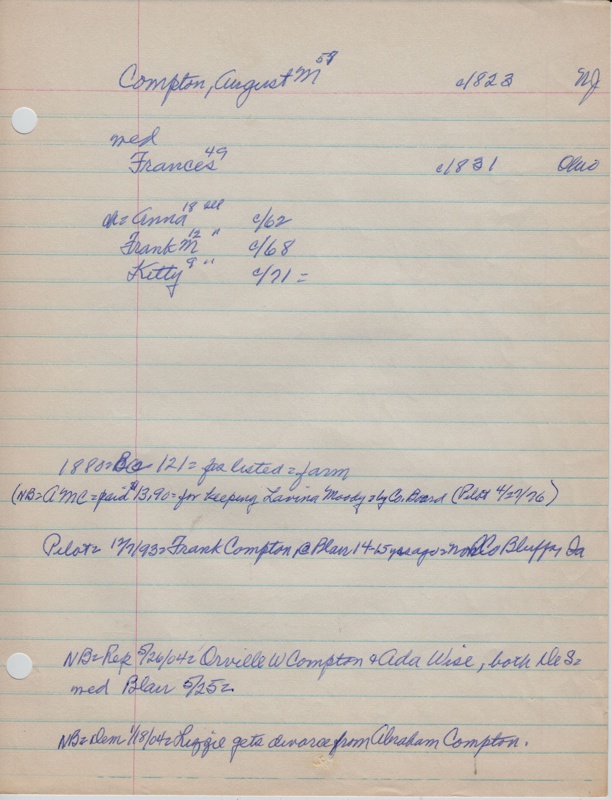 Compton, August M 57 c/1823 NJ
med
Frances 49 c/1831 Ohio
ch= Anna 18 Ill c/62
Frank M 12 " c/68
Kitty 9 " c/71=
1880= 121= fa listed= farm
(NB= AMC= paid $13.90= for keeping Lavina Moody= by Co. Board (Pilot 4/27/76)
Pilot= 12/7/93= Frank Compton, @ Blair 14-15 yrs ago= now Co Bluffs, Ia
NB= Rep 5/26/04= Orville W Compton & Ada Wise, both De S=
med Blair 5/25=
NB= Dem 1/18/04= Lizzie gets divorce from Abraham Compton.